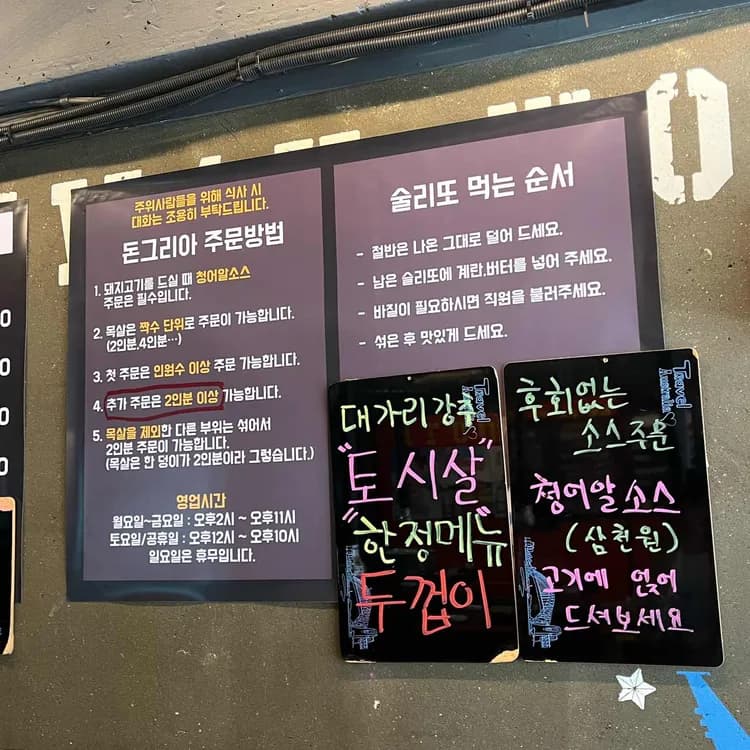 주위사람들을 위해 식사 시
대화는 조용히 부탁드립니다.
돈그리아 주문방법
1. 돼지고기를 드실 때 청어알소스
주문은 필수입니다.
2. 목살은 짝수 단위로 주문이 가능합니다.
(2인분.4인분…)
3. 첫 주문은 인원수 이상 주문 가능합니다.
4. 추가 주문은 2인분 이상 가능합니다.
5. 목살을 제외한 다른 부위는 섞어서
2인분 주문이 가능합니다.
(목살은 한 덩이가 2인분이라 그렇습니다.)
영업시간
월요일~금요일 : 오후2시 ~ 오후11시
토요일/공휴일 : 오후12시 ~ 오후10시
일요일은 휴무입니다.
술리또 먹는 순서
- 절반은 나온 그대로 덜어 드세요.
- 남은 술리또에 계란.버터를 넣어 주세요.
- 바질이 필요하시면 직원을 불러주세요.
- 섞은 후 맛있게 드세요.
대가리강추
"토시살"
"한정메뉴"
두껍이
Travel
Australia
후회없는
소스주문
청어알소스
(삼천원)
고기에 얹어
드셔보세요
Travel
Australia
O
0
0
0
0